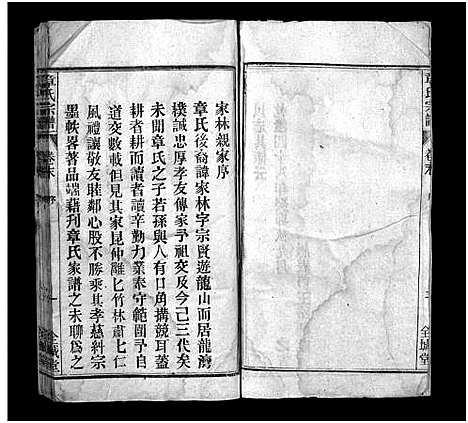 家林親家序
章氏後裔諱家林字宗賢遊龍山而居龍灣
樸誠忠厚孝友傳家予祖交及今已三代矣
未聞章氏之子若孫與人有口角搆競耳蓋
耕者耕而讀者讀辛勤力業奉守範圍予自
道交數載但見其家昆仲雖匕竹林肅匕仁
風禮讓敬友睦鄰心股不勝乘其孝慈料宗
墨軼畧著品端藉刊章氏家譜之末聊爲之
章氏宗譜
卷末
序
一
全城堂
章氏宗譜
卷末
序
全城堂